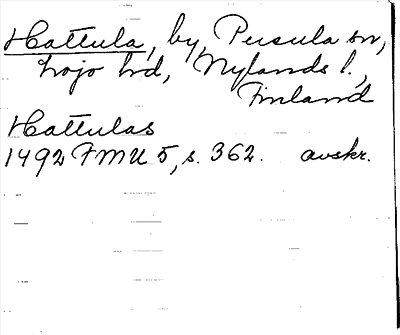 Hattula, by, Pusula sn,
Lojo hd, Nylands l.,
Finland
Hattulas
1492 FMU 5, s. 362. avskr.